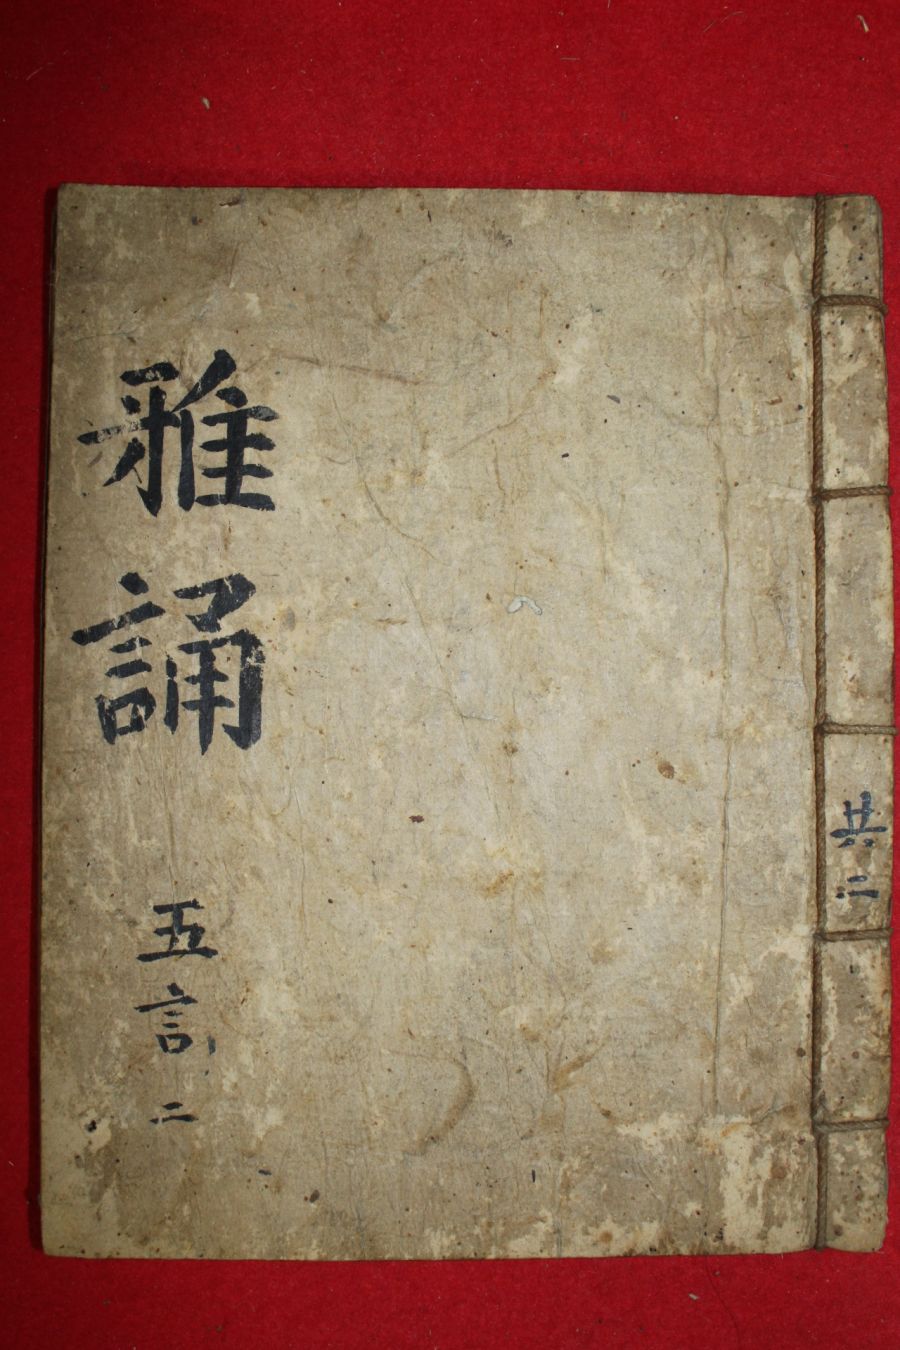 雅誦
五言 二
共二